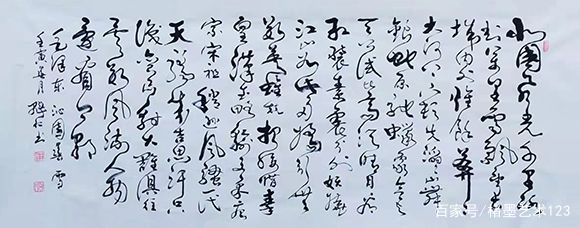 北国风光千里冰
封万里雪飘望长
城内外惟余莽莽
大河上下顿失滔滔山舞
银蛇原驰蜡象欲与
天公试比高须晴日看
红装素裹分外妖娆
江山如此多娇引无
数英雄竞折腰惜秦
皇汉武略输文采唐
宗宋祖稍逊风骚一代
天骄成吉思汗只
识弯弓射大雕俱往
矣数风流人物
还看今朝
毛泽东沁园春雪
壬寅 月 书
百家号/楮墨艺术123